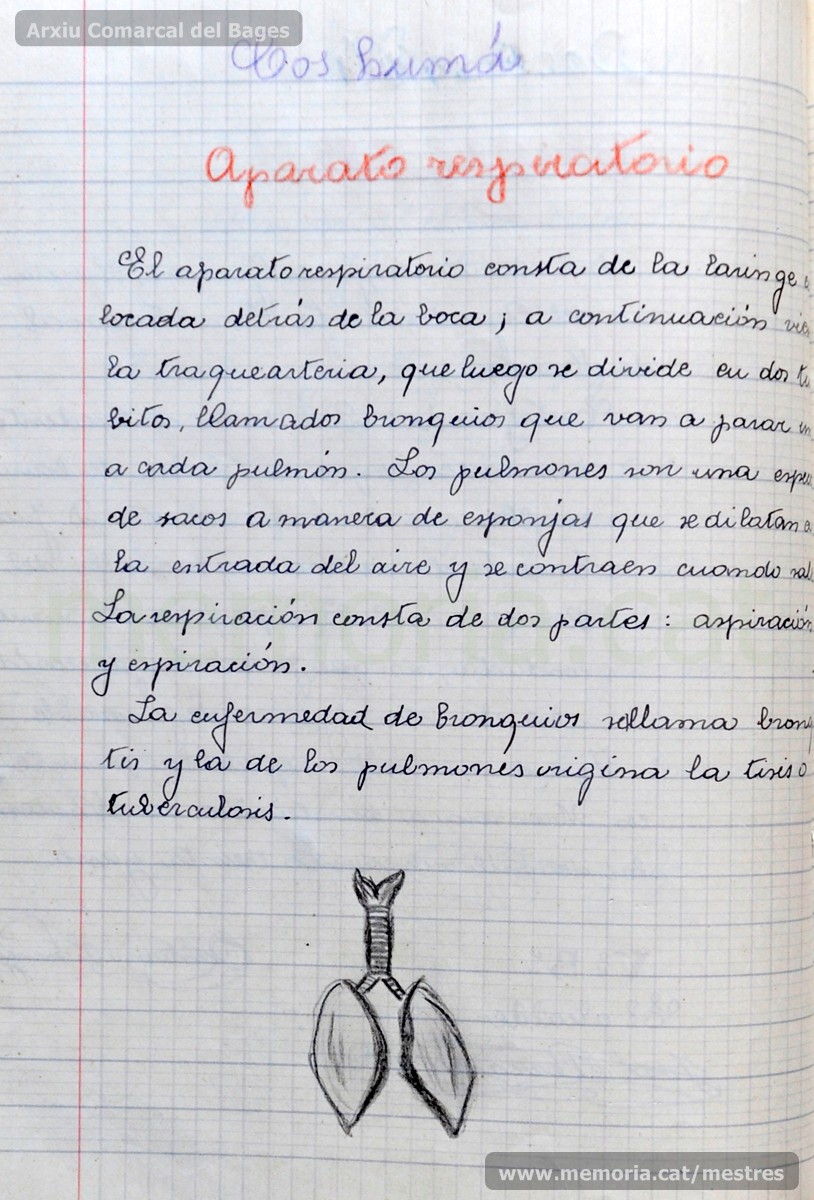 Arxiu Comarcal del Bages
Cos humá
Aparato respiratorio
El aparato respiratorio consta de la laringe
locada detrás de la boca; a continuación vie
la traquearteria, que luego se divide en dos tu
bitos, llamados bronquios que van a parar un
a cada pulmón. Los pulmones son una espec
de sacos a manera de esponjas que se dilatan a
la entrada del aire y se contraen cuando sal
La respiración consta de dos partes: aspiración
y espiración.
La enfermedad de bronquios se llama bronq
tis y la de los pulmones origina la tisis o
tuberculosis.
www.memoria.cat/mestres